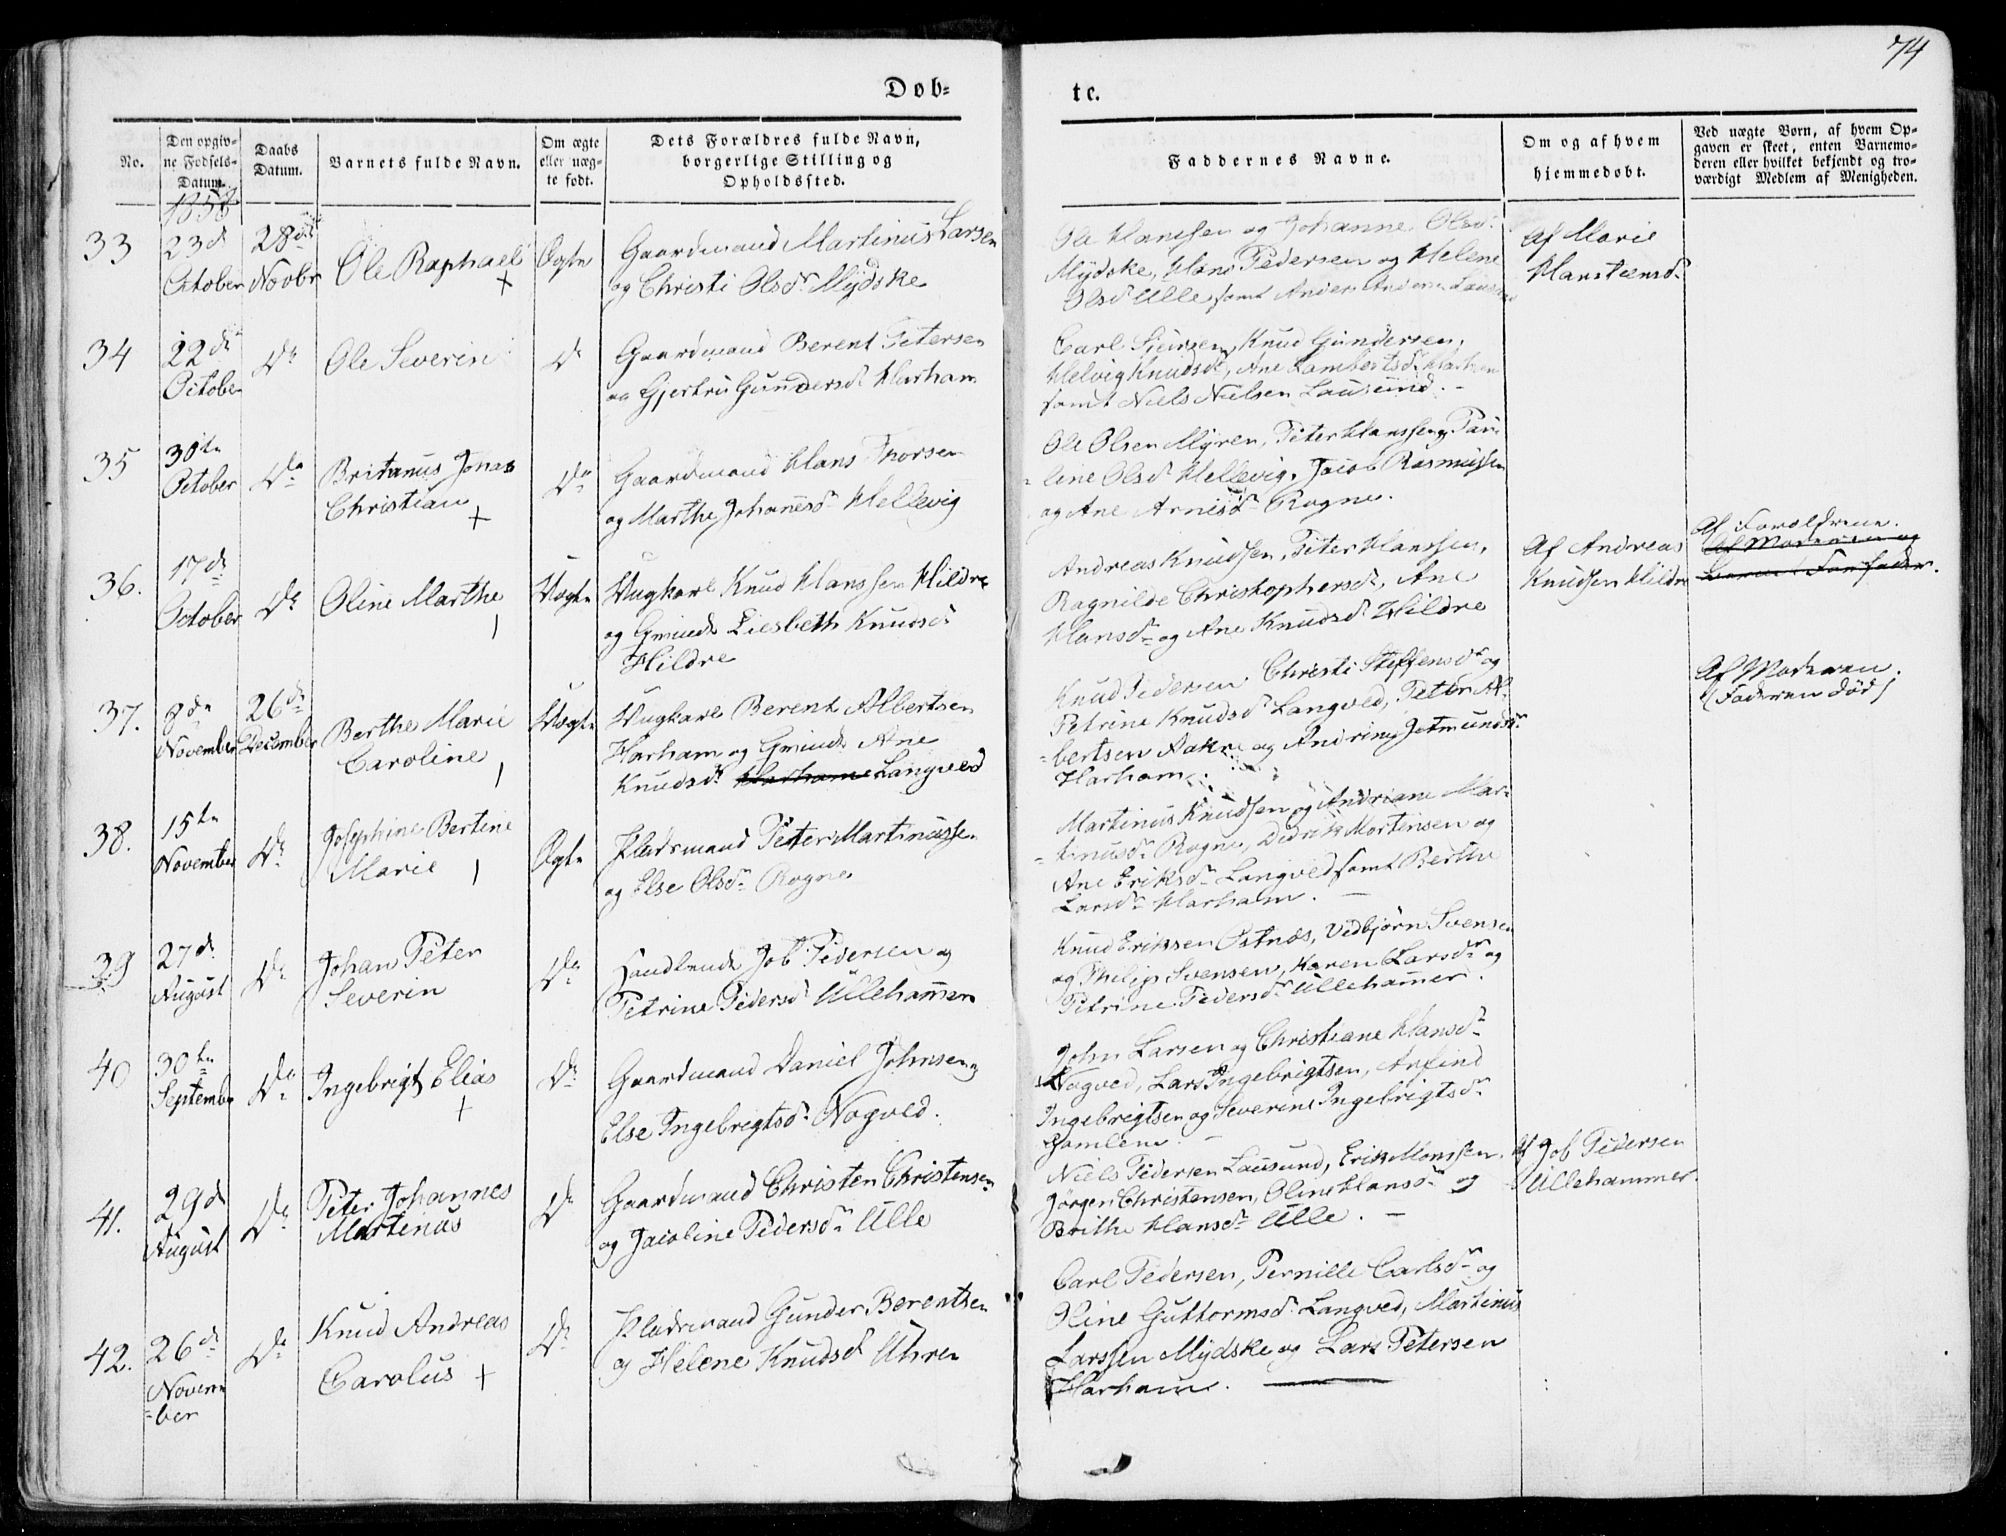 74
Døb=
te.
No.
Den opgiv=
ne Fødsels=
Datum.
Daabs
Datum.
Barnets fulde Navn.
Om ægte
eller uæg=
te født.
Dets Forældres fulde Navn,
borgerlige Stilling og
Opholdssted.
Faddernes Navne.
Om og af hvem
hjemmedøbt.
Ved uægte Børn, af hvem Op=
gaven er skeet, enten Barnemo=
deren eller hvilket bekjendt og tro=
værdigt Medlem af Menigheden.
1858
33
23d
October
28de
Novbr
Ole Raphael
+
Ægte
Gaardmand Martinus Larsen
og Christi Olsdr Mydske
Ole Hanssen og Johanne Olsdr
Mydske, Hans Pedersen og Helene
Olsdr Ulle samt Anders Andersen
Af Marie
Hansteensdr
34
22de
October
Do
Ole Severin
Do
Gaardmand Berent Petersen
og Gjertru Gundersdr Harham
Carl Sjursen, Knud Gundersen,
Helvig Knudsdr, Ane Lambertsdr Harham
samt Niels Nielsen Lausund. -
35
30te
October
Do
Britanus Jonas
Christian
+
Do
Gaardmand Hans Thorsen
og Marthe Johannesdr Hellevig
Ole Olsen Myren, Peter Hanssen, Pau=
=line Olsdr Hellevig, Jacob Rasmussen
og Ane Arnesdr Rogne.
36.
17de
October
Do
Oline Marthe
Uægte
Ungkarl Knud Hanssen Hildre
og Gminde Liesbeth Knudsdr
Hildre
Andreas Knudsen, Peter Hanssen,
Ragnilde Christophersdr, Ane
Hansdr og Ane Knudsdr Hildre
Af Andreas
Knudsen Hildre
Af Forældrene.
Af Moderen og
37.
8de
November
26de
December
Berthe Marie
Caroline
Uægte
Ungkarl Berent Albertsen
Harham og Gminde Ane
Knudsdr Harham Langved
Knud Pedersen, Christi Steffensdr og
Petrine Knudsdr Langved, Peter Al=
=bertsen Aakre og Andrine Jetmundsdr
Harham.
Af Moderen.
(Faderen død)
38.
15te
November
Do
Josephine Bertine
Marie
Ægte
Pladsmand Peter Martinussen
og Else Olsdr Rogne
Martinus Knudsen og Andriane Mar=
=tinusdr Rogne, Didrik Mortensen og
Ane Eriksdr Langved samt Berthe
Larsdr Harham. —
39
27de
August
Do
Johan Peter
Severin
Do
Handlende Job Pedersen og
Petrine Pedersdr Ullehammer
Knud Eriksen Østnæs, Vedbjørn Svensen
og Philip Svensen, Karen Larsdr og
Petrine Pedersdr Ullehammer.
40
30te
September
Do
Ingebrigt Elias
+
Do
Gaardmand Daniel Johnsen og
Else Ingebrigtsdr Nogved.
John Larsen og Christiane Hansdr
Nogved, Lars Ingebrigtsen, Arfind
Ingebrigtsen og Severine Ingebrigtsdr
Gamlem. —
41.
29de
August
Do
Peter Johannes
Martenus
Do
Gaardmand Christen Christensen
og Jacoline Pedersdr Ulle
Niels Pedersen Lausund, Erik Monssen,
Jørgen Christensen, Oline Hansdr og
Brithe Hansdr Ulle. —
Af Job Pedersen
Ullehammer.
42.
26de
Novem=
=ber
Do
Knud Andreas
Carolus +
Do
Pladsmand Gunder Berentsen
og Helene Knudsdr Uhre
Carl Pedersen, Pernille Carlsdr og
Oline Guttormsdr Langved, Martinus
Larssen Mydske og Lars Petersen
Harham.